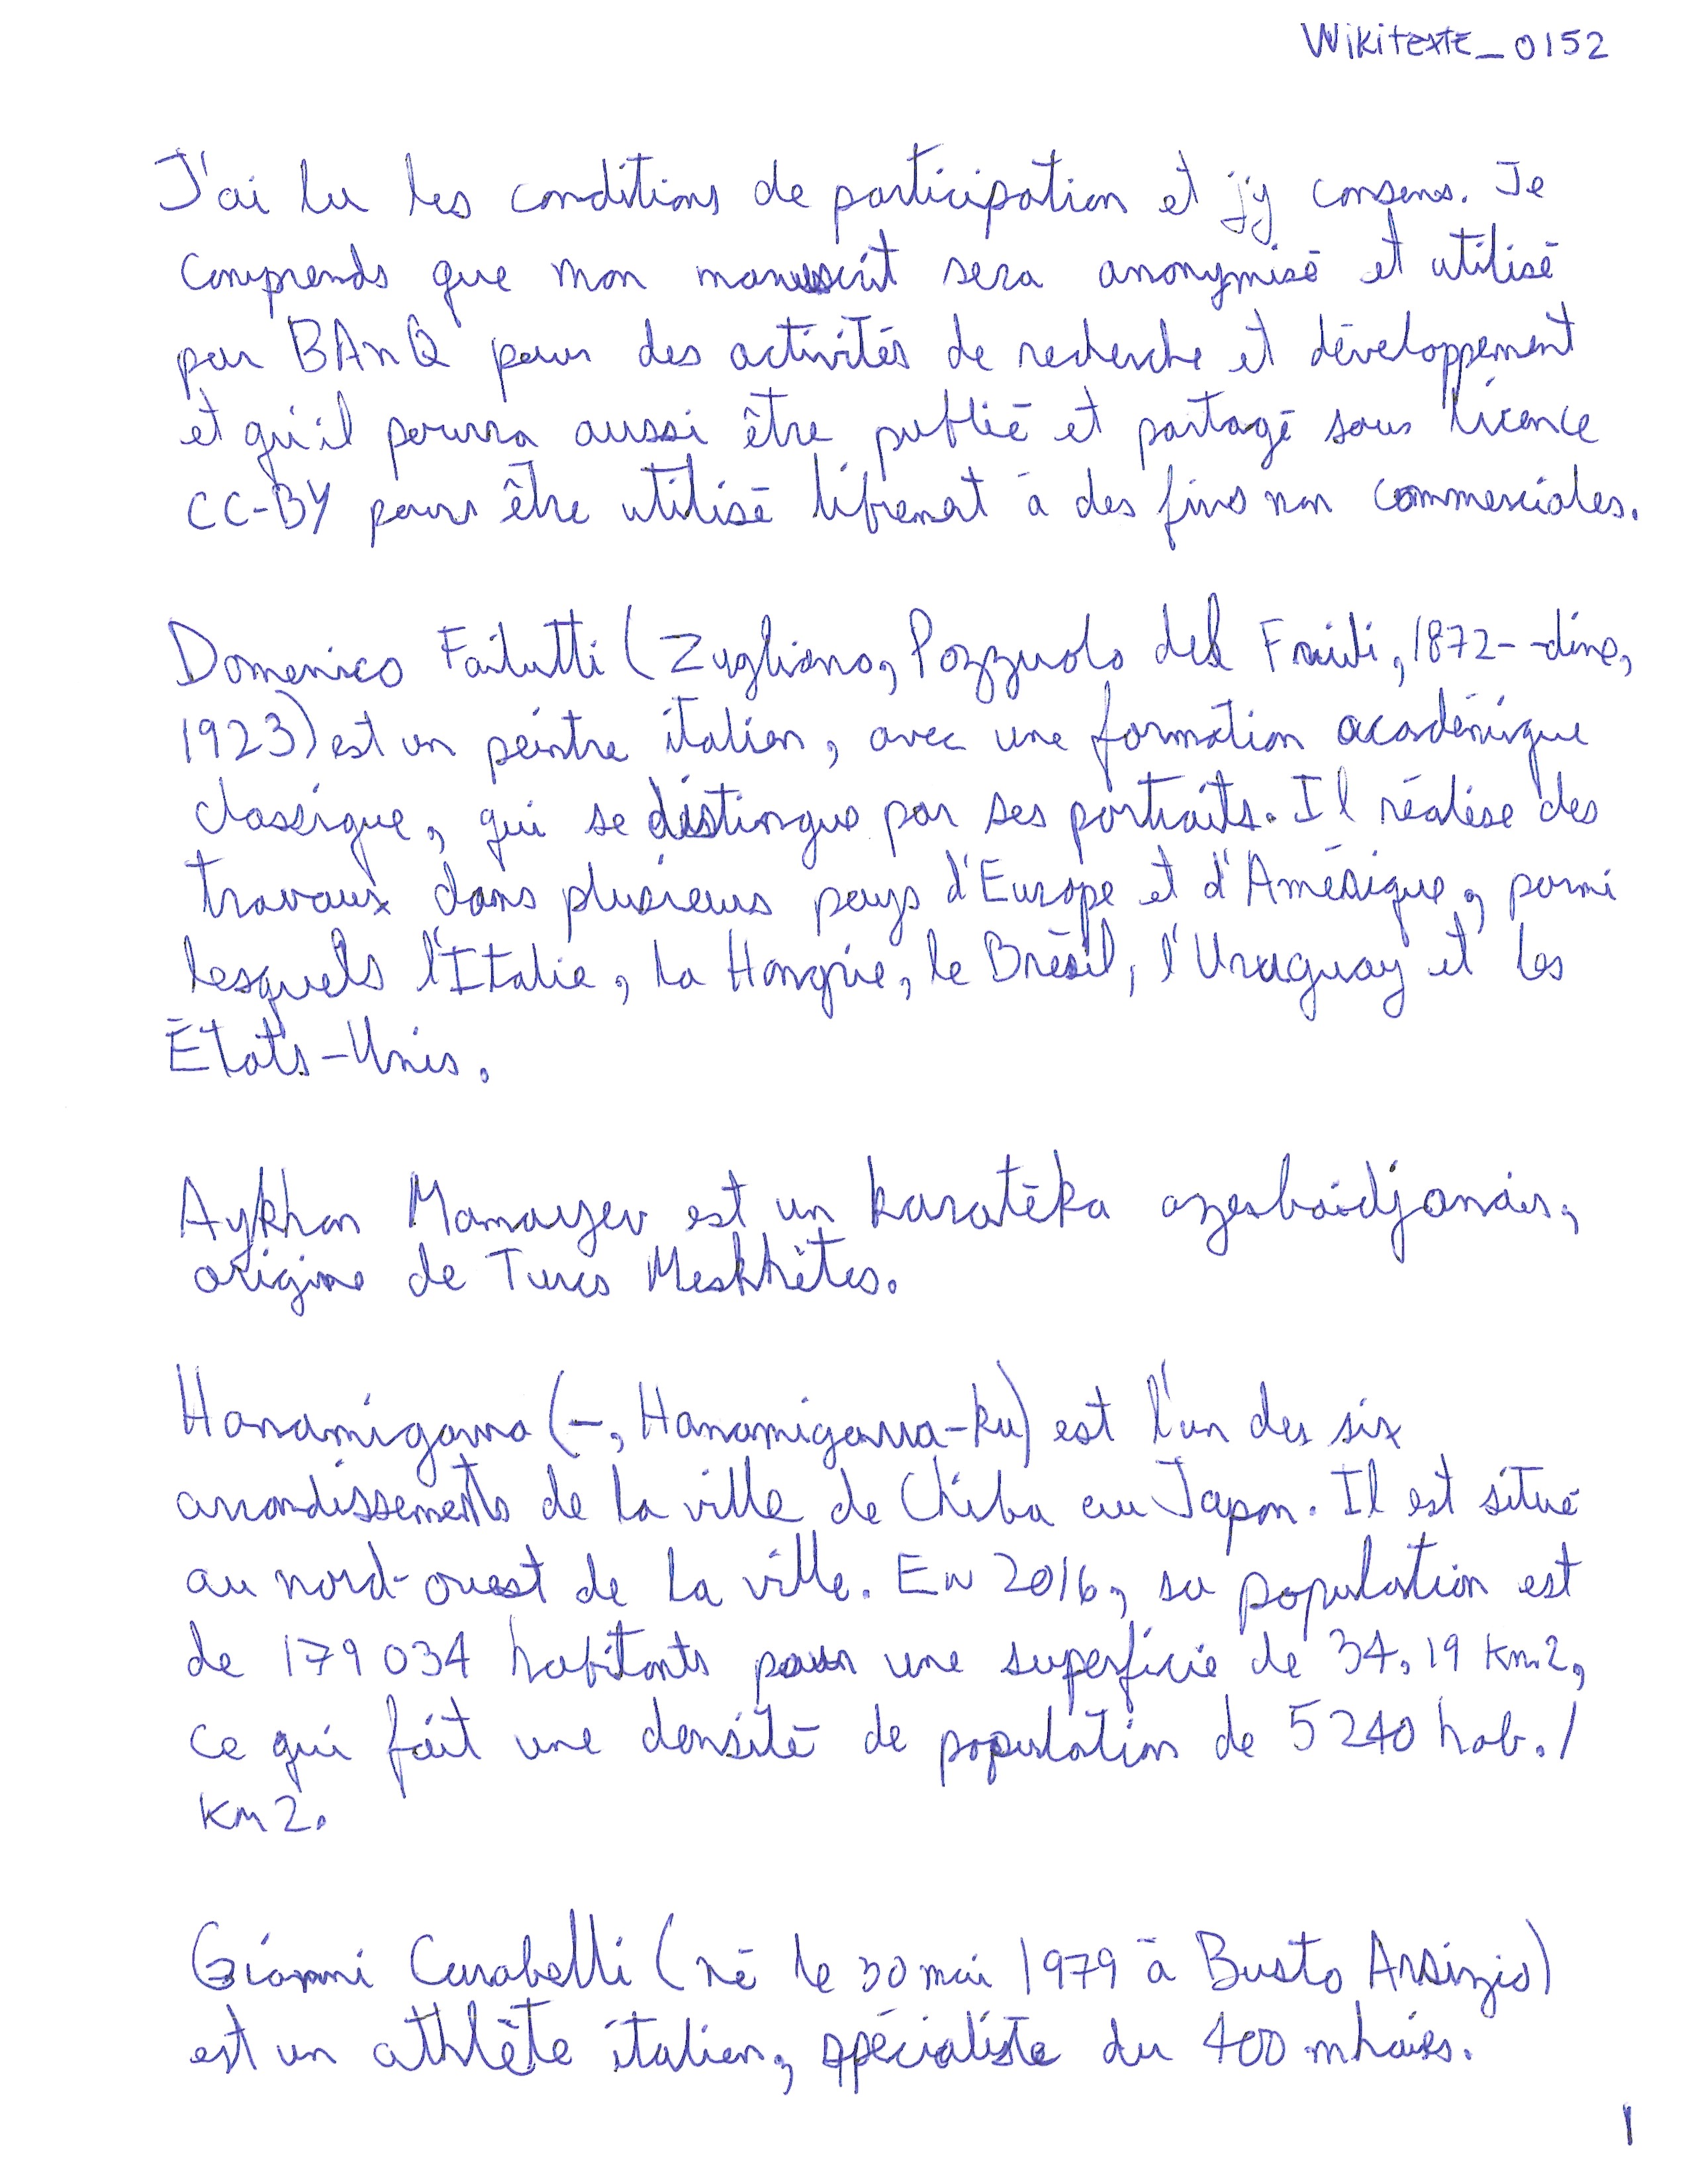 Wikitexte_0152
J'ai lu les conditions de participation et j'y consens. Je
comprends que mon manuscrit sera anonymisé et utilisé
par BAnQ pour des activités de recherche et développement
et qu'il pourra aussi être publié et partagé sous licence
CC-BY pour être utilisé librement à des fins non commerciales.
Domenico Failutti (Zugliano, Pozzuolo del Friuli, 1872--dine,
1923) est un peintre italien, avec une formation académique
classique, qui se distingue par ses portraits. Il réalise des
travaux dans plusieurs pays d'Europe et d'Amérique, parmi
lesquels l'Italie, la Hongrie, le Brésil, l'Uruguay et les
États-Unis.
Aykhan Mamayev est un karatéka azerbaïdjanais,
origine de Turcs Meskhètes.
Hanamigawa (-, Hanamigawa-ku) est l'un des six
arrondissements de la ville de Chiba au Japon. Il est situé
au nord-ouest de la ville. En 2016, sa population est
de 179 034 habitants pour une superficie de 34,19 km2,
ce qui fait une densité de population de 5240 hab./
km2.
Gianni Carabelli (né le 30 mai 1979 à Busto Arsizio)
est un athlète italien, spécialiste du 400 mhaies.
1